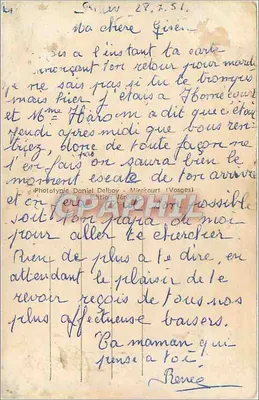 28.7.51
Ma chère Gisèle
à l'instant ta carte
ton retour pour mardi
je ne sais pas si tu te trompes
mais hier j'étais à Homécourt
et Mme Harom a dit que c'était
jeudi après midi que vous ren-
triez, donc de toute façon ne
t'en fais pas on saura bien le
moment exacte de ton arrivée
Phototypie Daniel Delboy - Mirecourt (Vosges)
et on fera son possible
soit ton papa ou moi
pour aller te chercher
Rien de plus à te dire, en
attendant le plaisir de te
revoir reçois de tous nos
plus affectueuse baisers.
Ta maman qui
pense à toi
Renée